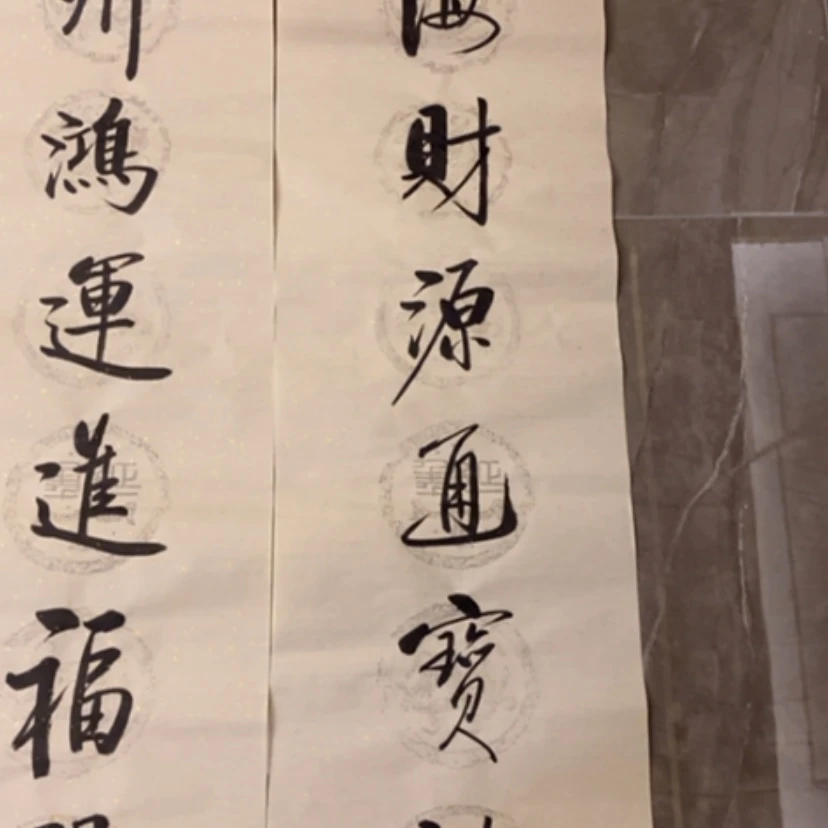 海財源通寶
州鴻運進福